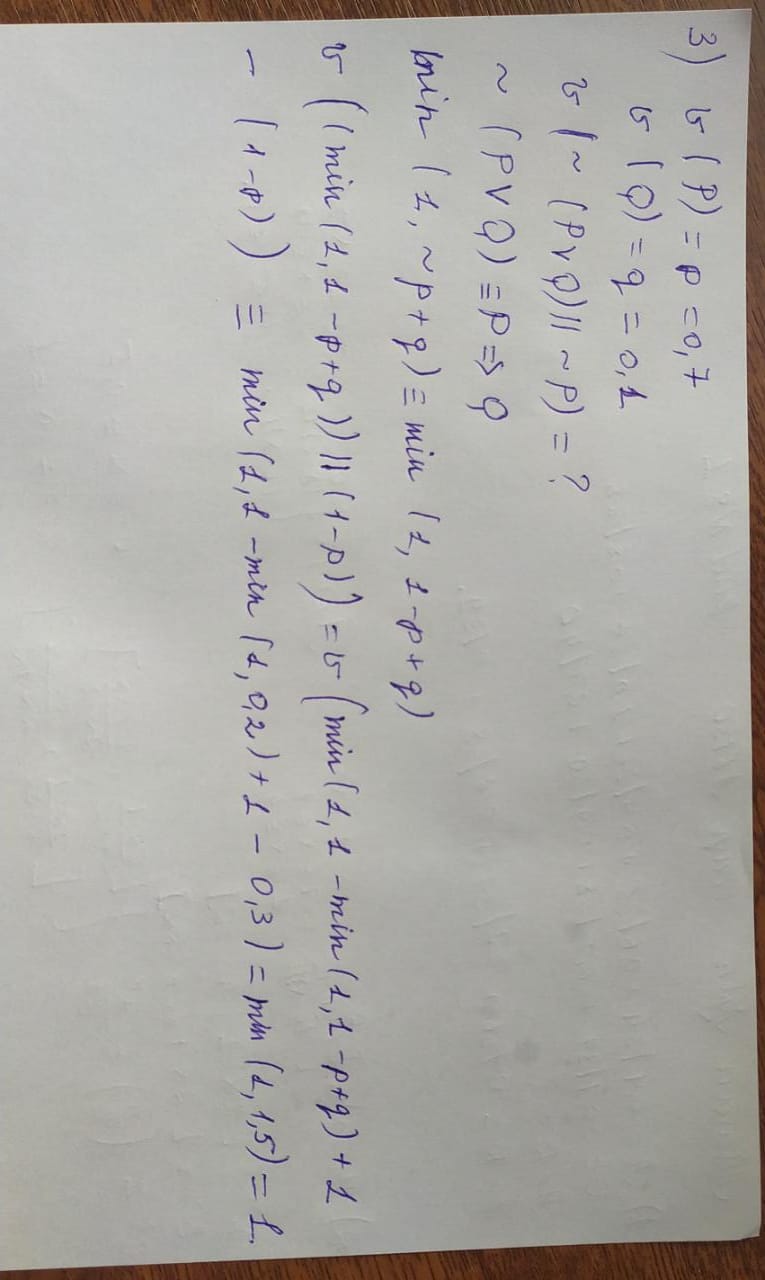 3) v (P) = p = 0,7
v (Q) = q = 0,1
v (~ (P∨Q) || ~P) = ?
~ (P∨Q) ≡ P ⇒ Q
min (1, ~p+q) ≡ min (1, 1-p+q)
v ((min (1,1 -p+q)) || (1-p)) = v (min(1,1 -min(1,1-p+q) + 1
- (1-p)) ≡ min (1,1 -min (1,0,2) + 1 - 0,3) = min (1, 1,5) = 1.